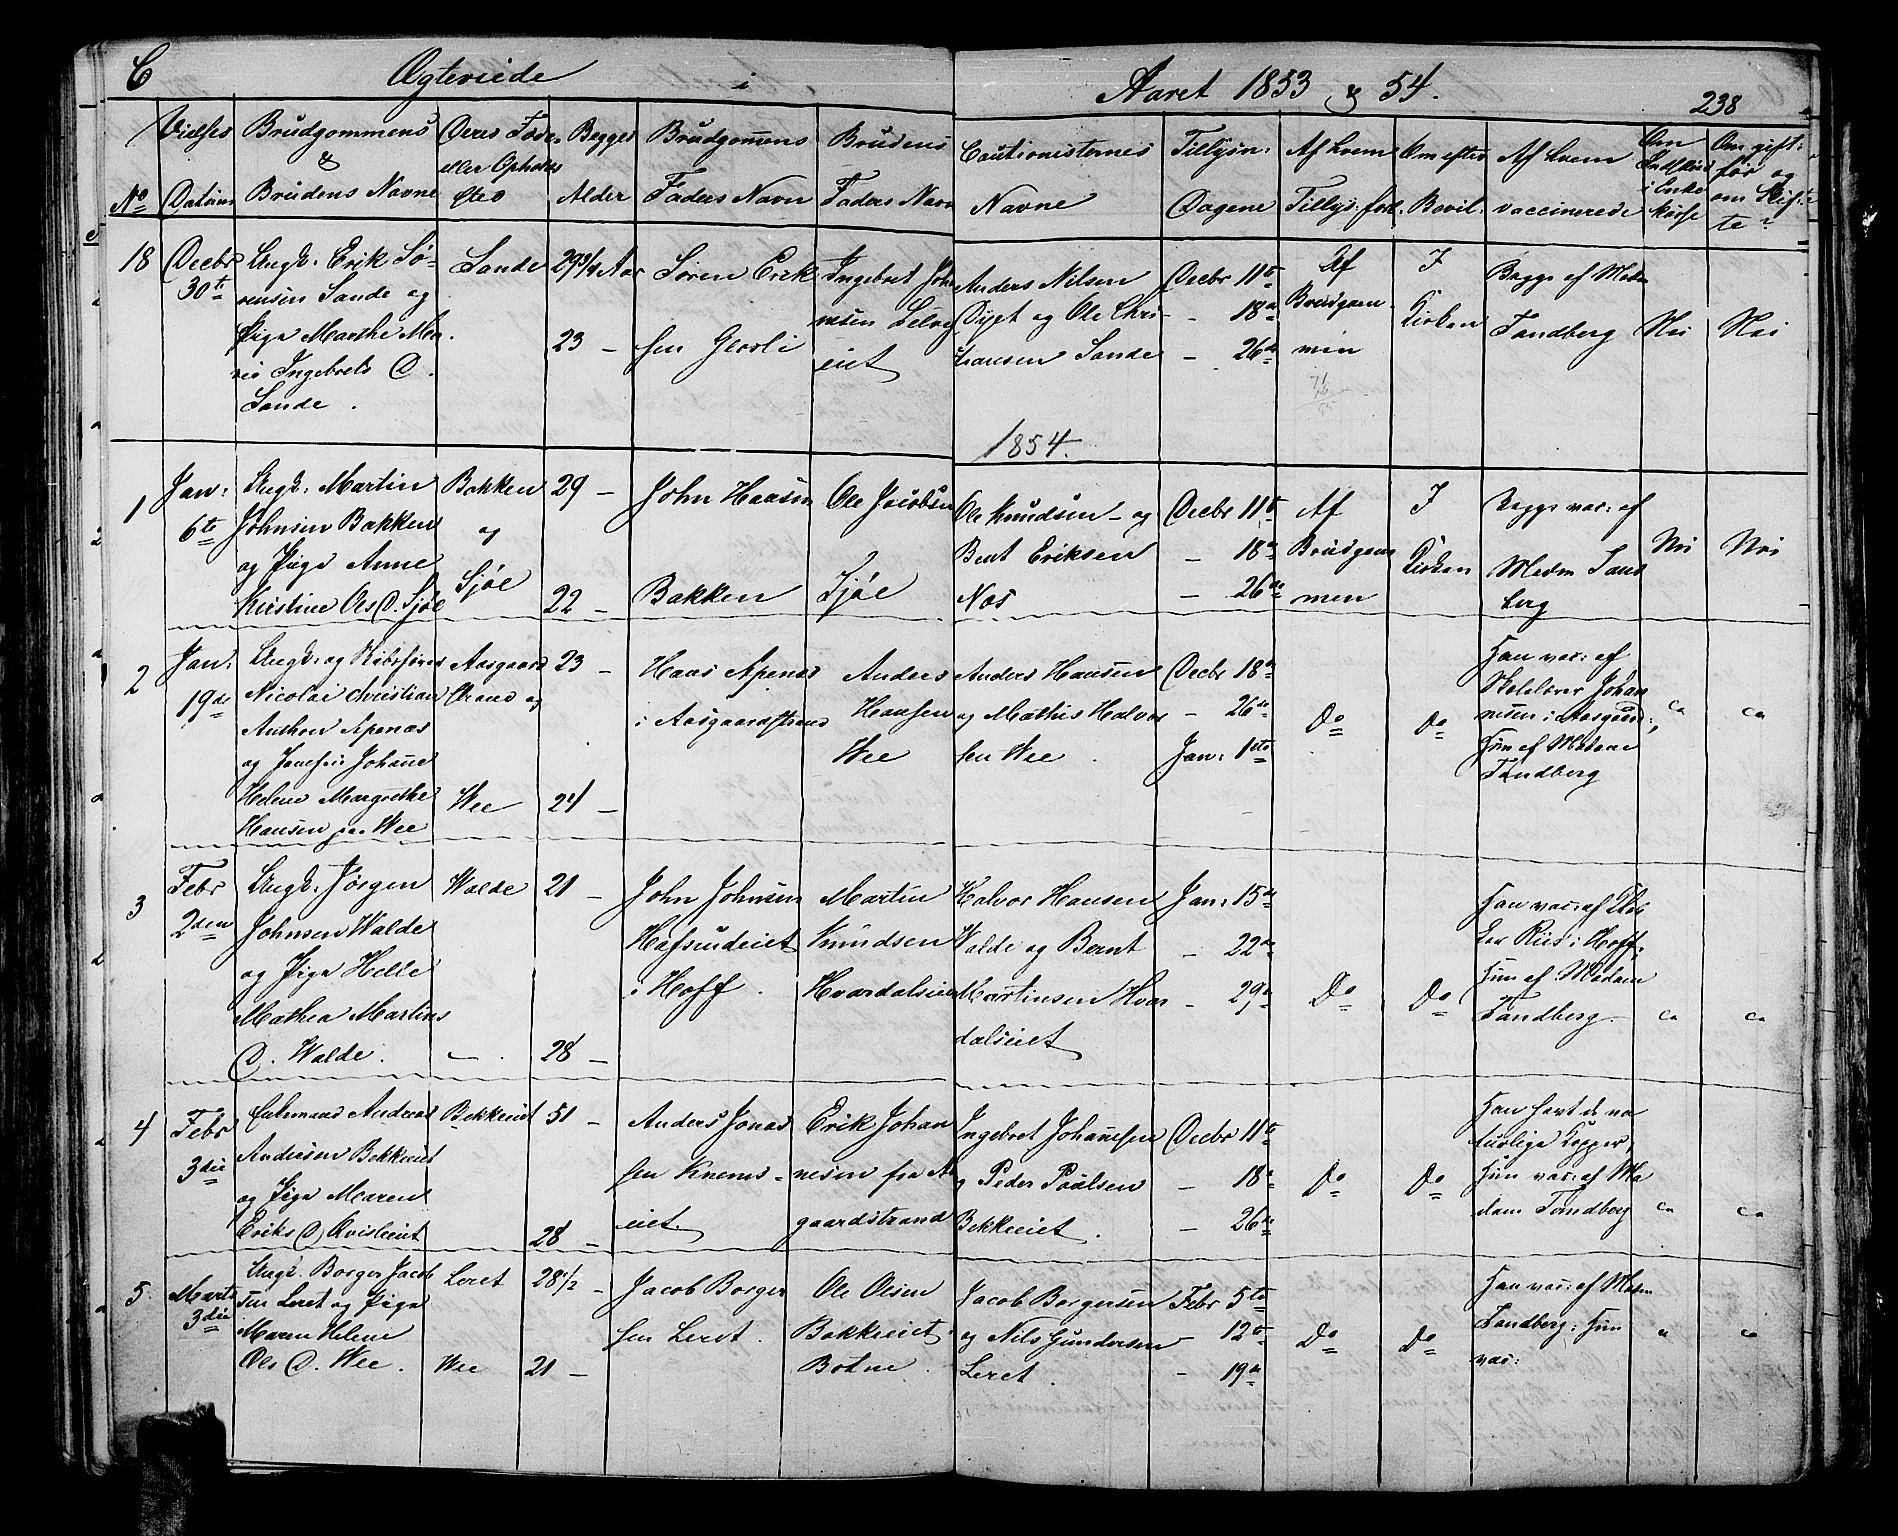 C Ægteviede i Aaret 1853 & 54.
238
No
Vielses Datum
Brudgommens & Brudens Navne
Deres Føde eller Opholds Sted
Begges Alder
Brudgommens Faders Navn
Brudens Faders Navn
Cautionisternes Navne
Tillysn: Dagene
Af hvem Tillys: ford.
Om efter Bevil:
Af hvem vaccinerede
Om gift: før og om Skifte?
18
Decbr 30te
Ungk: Erik Sø-
rensen Sande og
Pige Marthe Ma-
rie Ingebrets D.
Sande.
Sande
29 3/4 Aar
23 –
Søren Erik
sen
Ingebret Joha
nesen
eiet
Anders Nilsen
og Ole Chri-
stiansen Sande
Decbr 11te
– 18de
– 26de
Af
Brudgom
men
I
Kirken
Begge af Madm
Tandberg
Nei
Nei
1854.
1
Jan:
6te
Ungk: Martin
Johnsen Bakken
og Pige Anne
Kristine Ols D. Sjøe
Bakken
og
Sjøe
29 –
22 –
John Hansen
Bakken
Ole Jacobsen
Sjøe
Ole Knudsen og
Bent Eriksen
Nes
Decbr 11te
– 18de
– 26de
Af
Brudgom
men
I
Kirken
Begge vac: af
Madm Tand
berg
Nei
Nei
2
Jan:
19de
Ungk: og
Nicolai Christian
Anthon Apenæs
og Jomfru Johanne
Helene Margrethe
Hansen paa Wee
Aasgaard
strand og
Wee
23 –
24 –
Hans Apenæs
i Aasgaardstrand
Anders
Hansen
Wee
Anders Hansen
og Mathis Halvor
sen Wee.
Decbr 18de
– 26de
Jan: 1ste
Do
Do
Han vac: af
Skolelærer Johan
nesen i Aasgaard:,
Hun af Madame
Tandberg
ca
ca
3
Febr
2den
Ungk: Jørgen
Johnsen Walde
og Pige Helle
Mathea Martins
D. Walde.
Walde
21 –
28 –
John Johnsen
Hofsundeiet
i Hoff.
Martin
Knudsen
Hvardalseiet
Halvor Hansen
Walde og Bernt
Martinsen Hvar
dalseiet
Jan: 15de
– 22de
– 29de
Do
Do
Han vac: af
Riis i Hoff;
Hun af Madam
Tandberg.
ca
ca
4
Febr
3die
Enkemand Andreas
Andersen Bekkeeiet
og Pige Maren
Eriks D Qvisleeiet
Bekkeeiet
51 –
28 –
Anders Jonas
sen Knems-
eiet.
Erik Johan
nesen fra Aa
gaardstrand
Ingebret Johannesen
og Peder Paulsen
Bekkeeiet.
Decbr 11te
– 18de
– 26de
Do
Do
Han havt de na
turlige Kopper,
Hun vac: af Ma
dam Tandberg
ca
ca
5
Marts
3die
Ungk: Borger Jacob
sen Leret og Pige
Maren Helene
Ols D. Wee.
Leret
Wee
28 1/2 –
21 –
Jacob Borger
sen Leret.
Ole Olsen
Bakkeeiet
Botne.
Jacob Borgersen
og Nils Gundersen
Leret.
Febr 5te
– 12te
– 19de
Do
Do
Han vac: af Madm
Tandberg: Hun
vac:
ca